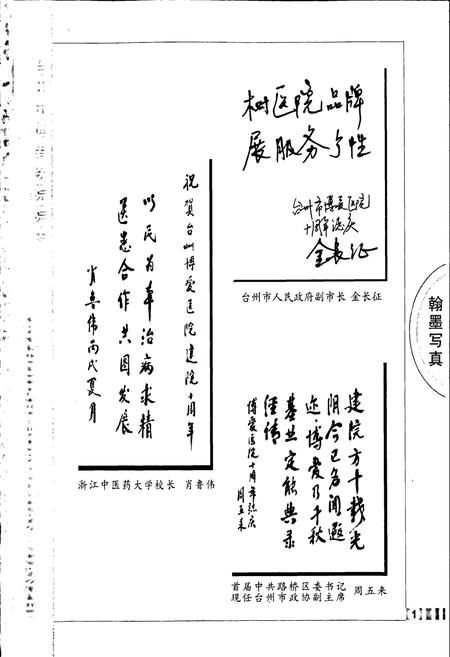 树医院品牌
展服务个性
台州市博爱医院
十周年志庆
金长征
台州市人民政府副市长 金长征
翰墨写真
祝贺台州博爱医院建院十周年
以民为本治病求精
医患合作共图发展
肖鲁伟丙戌夏月
浙江中医药大学校长 肖鲁伟
建院方十载光
阴今已名闻遐
迩博爱乃千秋
基业定能典录
经传
博爱医院十周年志庆
周五来
首届中共路桥区委书记
现任台州市政协副主席 周五来
1